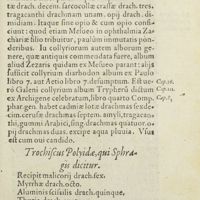 tæ drach. decem. sarcocollæ crassæ drach. tres,
tragacanthi drachmam unam. opij drach. di-
midiam. Itaque sine opio & cum opio consi-
ciunt: quod etiam Mesueo in ophthalmia Za-
chariæ filio tribuitur, paulum immutatis pon-
deribus. In collyriorum autem alborum ge-
nere, quæ antiquis communia fuere, album
aliud Zezaris quidam ex Mesueo parant: a
suffecit collyrium diarhodon album ex Paulo
libro 7. aut Aetio libro 7. desumptum. Est ue-
rò Galeni collyrium album Trypherũ dictum
ex Archigene celebratum, libro quarto Comp.
phar. gen. habet cadmiæ lotæ drachmas sende-
cim. cerusæ drachmas septem. amyli, tragacan-
thi, gummi Arabici, sing. drachmas quatuor. o-
pij drachmas duas. excipe aqua pluuia.
est cum ouo.
Cap. 16.
Cap. 111.
Cap. 5.
Trochiscus Polyidæ, qui Sphra-
gis dicitur.
Recipit malicorij drach. sex.
Myrrhæ drach. octo.
Aluminis scissilis drach. quinque.